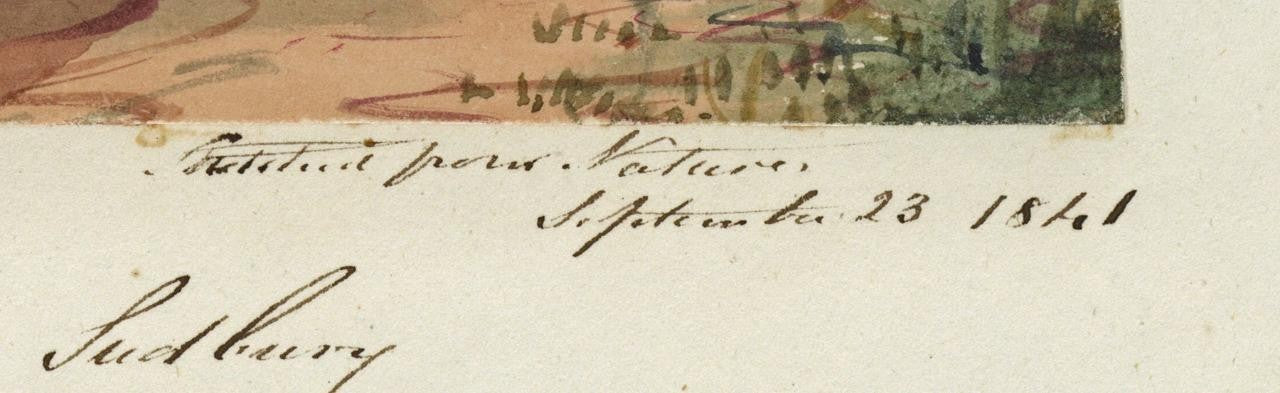 Sketched from Nature.
September 23 1841
Sudbury